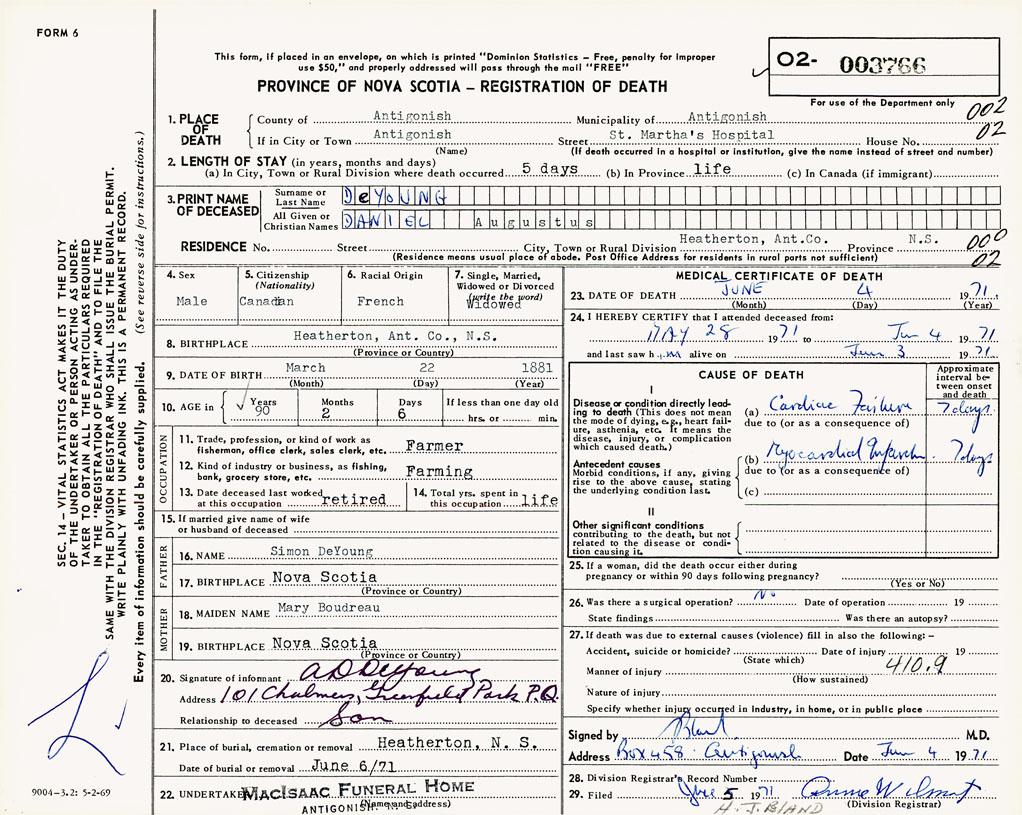 FORM 6
This form, if placed in an envelope, on which is printed "Dominion Statistics – Free, penalty for improper
use $50," and properly addressed will pass through the mail "FREE"
PROVINCE OF NOVA SCOTIA – REGISTRATION OF DEATH
02- 003766
For use of the Department only
002
02
1. PLACE OF DEATH
County of Antigonish Municipality of Antigonish
If in City or Town Antigonish Street St. Martha's Hospital House No.
(Name) (If death occurred in a hospital or institution, give the name instead of street and number)
2. LENGTH OF STAY (in years, months and days)
(a) In City, Town or Rural Division where death occurred 5 days (b) In Province life (c) In Canada (if immigrant)
3. PRINT NAME OF DECEASED
Surname or Last Name DeYOUNG
All Given or Christian Names DANIEL Augustus
RESIDENCE No. Street City, Town or Rural Division Heatherton, Ant.Co. Province N.S.
(Residence means usual place of abode. Post Office Address for residents in rural parts not sufficient)
000
02
4. Sex
Male
5. Citizenship
(Nationality)
Canadian
6. Racial Origin
French
7. Single, Married,
Widowed or Divorced
(write the word)
Widowed
8. BIRTHPLACE Heatherton, Ant. Co., N.S.
(Province or Country)
9. DATE OF BIRTH March 22 1881
(Month) (Day) (Year)
10. AGE in Years 90 Months 2 Days 6 If less than one day old
hrs. or min.
OCCUPATION
11. Trade, profession, or kind of work as
fisherman, office clerk, sales clerk, etc. Farmer
12. Kind of industry or business, as fishing,
bank, grocery store, etc. Farming
13. Date deceased last worked
at this occupation retired
14. Total yrs. spent in
this occupation life
15. If married give name of wife
or husband of deceased
FATHER
16. NAME Simon DeYoung
17. BIRTHPLACE Nova Scotia
(Province or Country)
MOTHER
18. MAIDEN NAME Mary Boudreau
19. BIRTHPLACE Nova Scotia
(Province or Country)
20. Signature of informant A D DeYoung
Address 101 Chalmers, Greenfield Park P.Q.
Relationship to deceased Son
21. Place of burial, cremation or removal Heatherton, N. S.
Date of burial or removal June 6/71
22. UNDERTAKER MacIsaac Funeral Home
ANTIGONISH, N. S.
(Name and address)
MEDICAL CERTIFICATE OF DEATH
23. DATE OF DEATH JUNE 4 1971
(Month) (Day) (Year)
24. I HEREBY CERTIFY that I attended deceased from:
MAY 28 1971 to Jun 4 1971
and last saw him alive on June 3 1971
CAUSE OF DEATH
Approximate
interval be-
tween onset
and death
I
Disease or condition directly lead-
ing to death (This does not mean
the mode of dying, e.g., heart fail-
ure, asthenia, etc. It means the
disease, injury, or complication
which caused death.)
(a) Cardiac Failure 7 days
due to (or as a consequence of)
Antecedent causes
Morbid conditions, if any, giving
rise to the above cause, stating
the underlying condition last.
(b) Myocardial Infarction 7 days
due to (or as a consequence of)
(c)
II
Other significant conditions
contributing to the death, but not
related to the disease or condi-
tion causing it.
25. If a woman, did the death occur either during
pregnancy or within 90 days following pregnancy?
(Yes or No)
26. Was there a surgical operation? No Date of operation 19
State findings Was there an autopsy?
27. If death was due to external causes (violence) fill in also the following: –
Accident, suicide or homicide? Date of injury 19
(State which)
410.9
Manner of injury
(How sustained)
Nature of injury
Specify whether injury occurred in industry, in home, or in public place
Signed by Bland M.D.
Address Box 458 Antigonish Date Jun 4 1971
28. Division Registrar's Record Number
29. Filed June 5 1971 Anne Wilmot
(Division Registrar)
H. J. BLAND
SEC. 14 – VITAL STATISTICS ACT MAKES IT THE DUTY
OF THE UNDERTAKER OR PERSON ACTING AS UNDER-
TAKER TO OBTAIN ALL THE PARTICULARS REQUIRED
IN THE "REGISTRATION OF DEATH" AND TO FILE THE
SAME WITH THE DIVISION REGISTRAR WHO SHALL ISSUE THE BURIAL PERMIT.
WRITE PLAINLY WITH UNFADING INK. THIS IS A PERMANENT RECORD.
Every item of information should be carefully supplied. (See reverse side for instructions.)
9004-3.2: 5-2-69